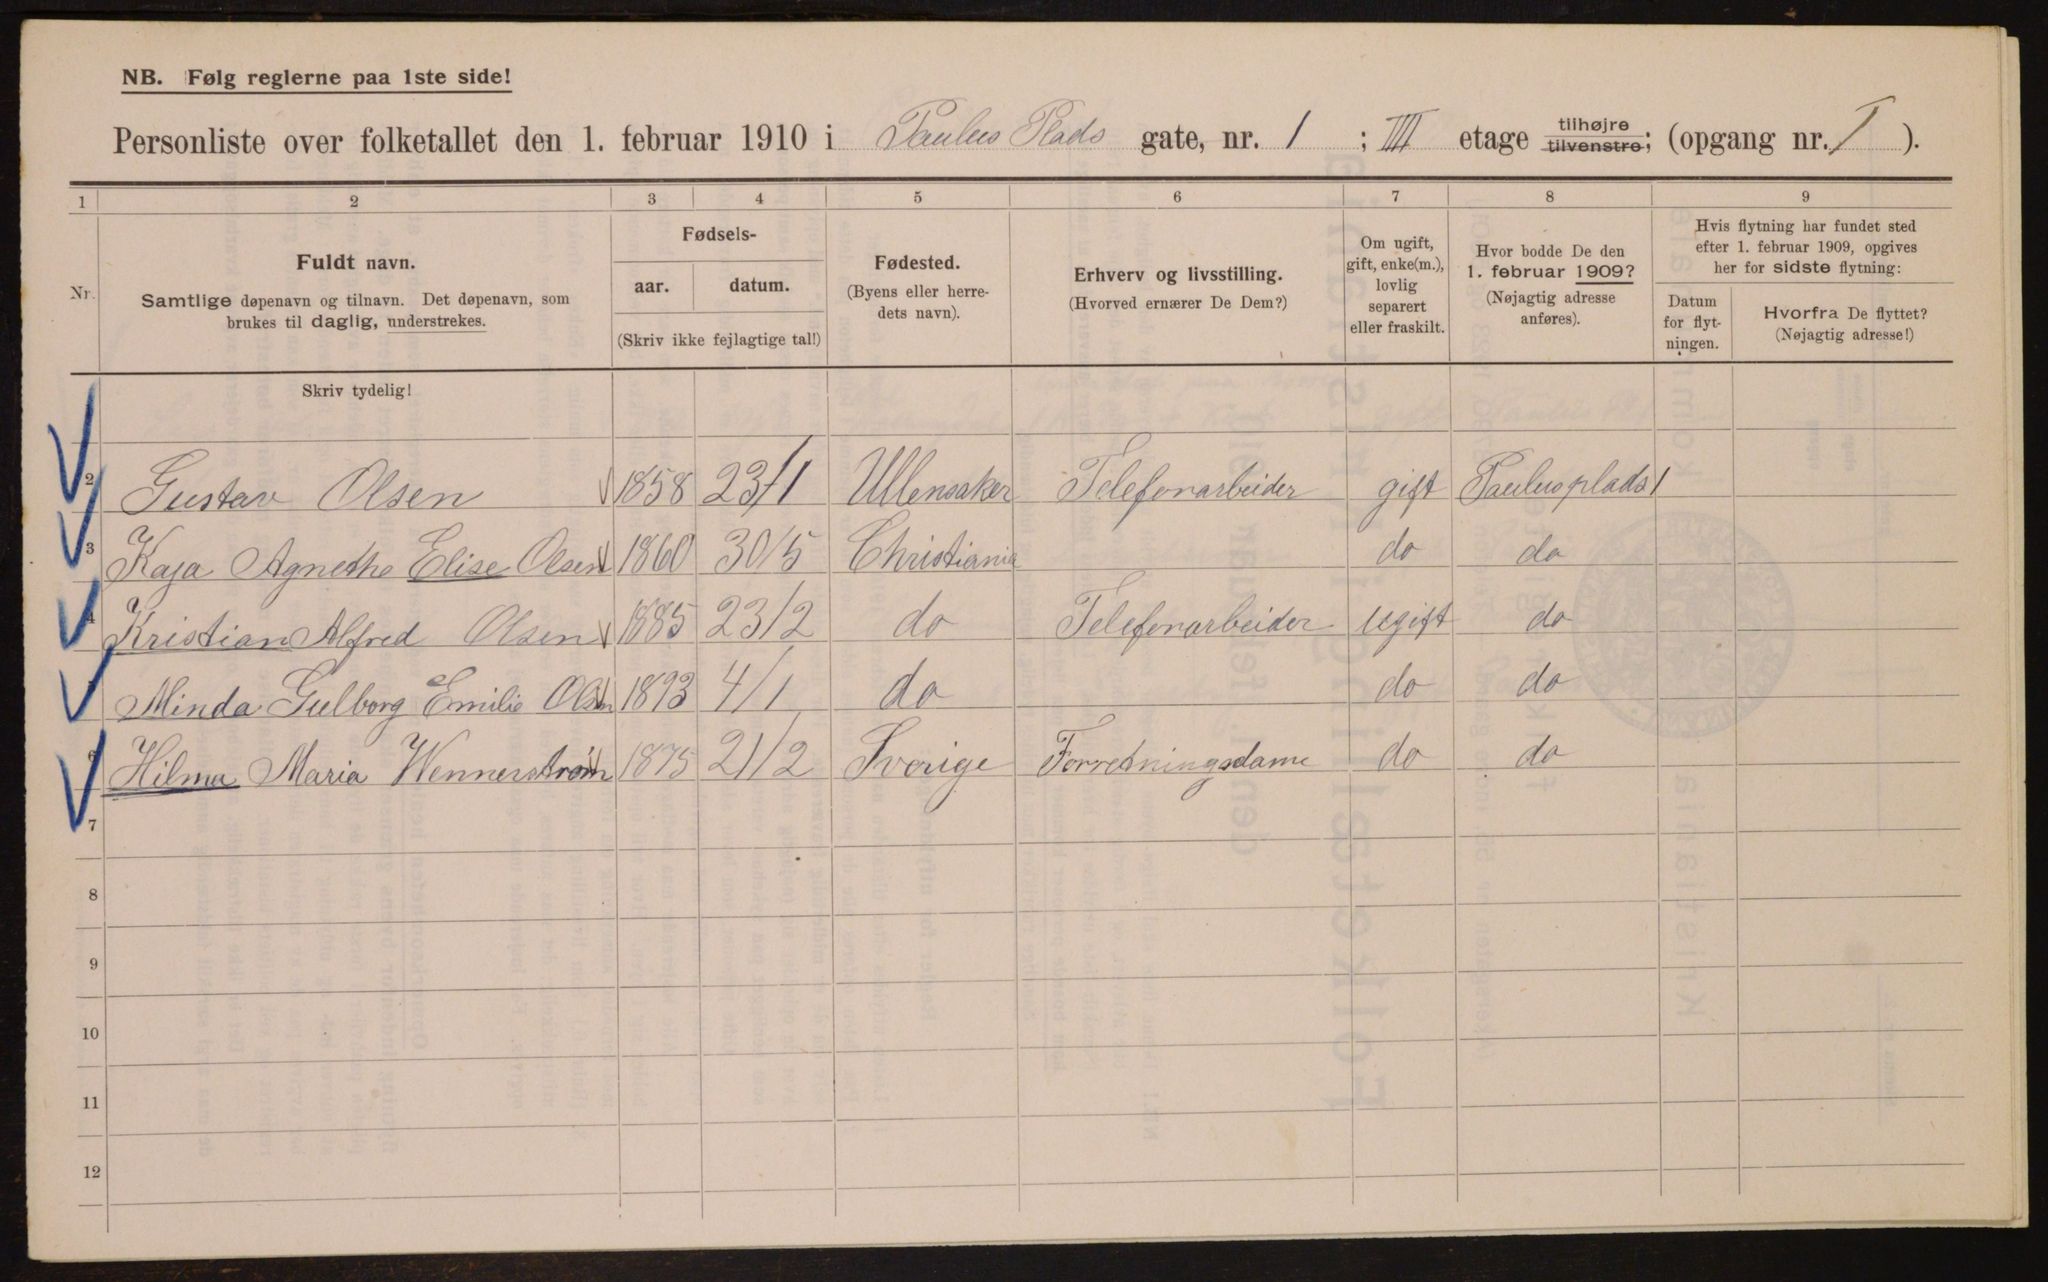 NB. Følg reglerne paa 1ste side!
Personliste over folketallet den 1. februar 1910 i Paulus Plads gate, nr. 1 ; IIII etage tilhøjre tilvenstre; (opgang nr. I ).
1 2 3 4 5 6 7 8 9
Nr.
Fuldt navn.
Samtlige døpenavn og tilnavn. Det døpenavn, som
brukes til daglig, understrekes.
Fødsels-
aar. datum.
(Skriv ikke fejlagtige tal!)
Fødested.
(Byens eller herre-
dets navn).
Erhverv og livsstilling.
(Hvorved ernærer De Dem?)
Om ugift,
gift, enke(m.),
lovlig
separert
eller fraskilt.
Hvor bodde De den
1. februar 1909?
(Nøjagtig adresse
anføres).
Hvis flytning har fundet sted
efter 1. februar 1909, opgives
her for sidste flytning:
Datum
for flyt-
ningen.
Hvorfra De flyttet?
(Nøjagtig adresse!)
Skriv tydelig!
2 Gustav Olsen 1858 23/1 Ullensaker Telefonarbeider gift Paulusplads 1
3 Kaja Agnethe Elise Olsen 1860 30/5 Christiania do do
4 Kristian Alfred Olsen 1885 23/2 do Telefonarbeider ugift do
Minda Gulborg Emilie Olsen 1893 4/1 do do do
6 Hilma Maria Wennerstrøm 1875 21/2 Sverige Forretningsdame do do
7
8
9
10
11
12